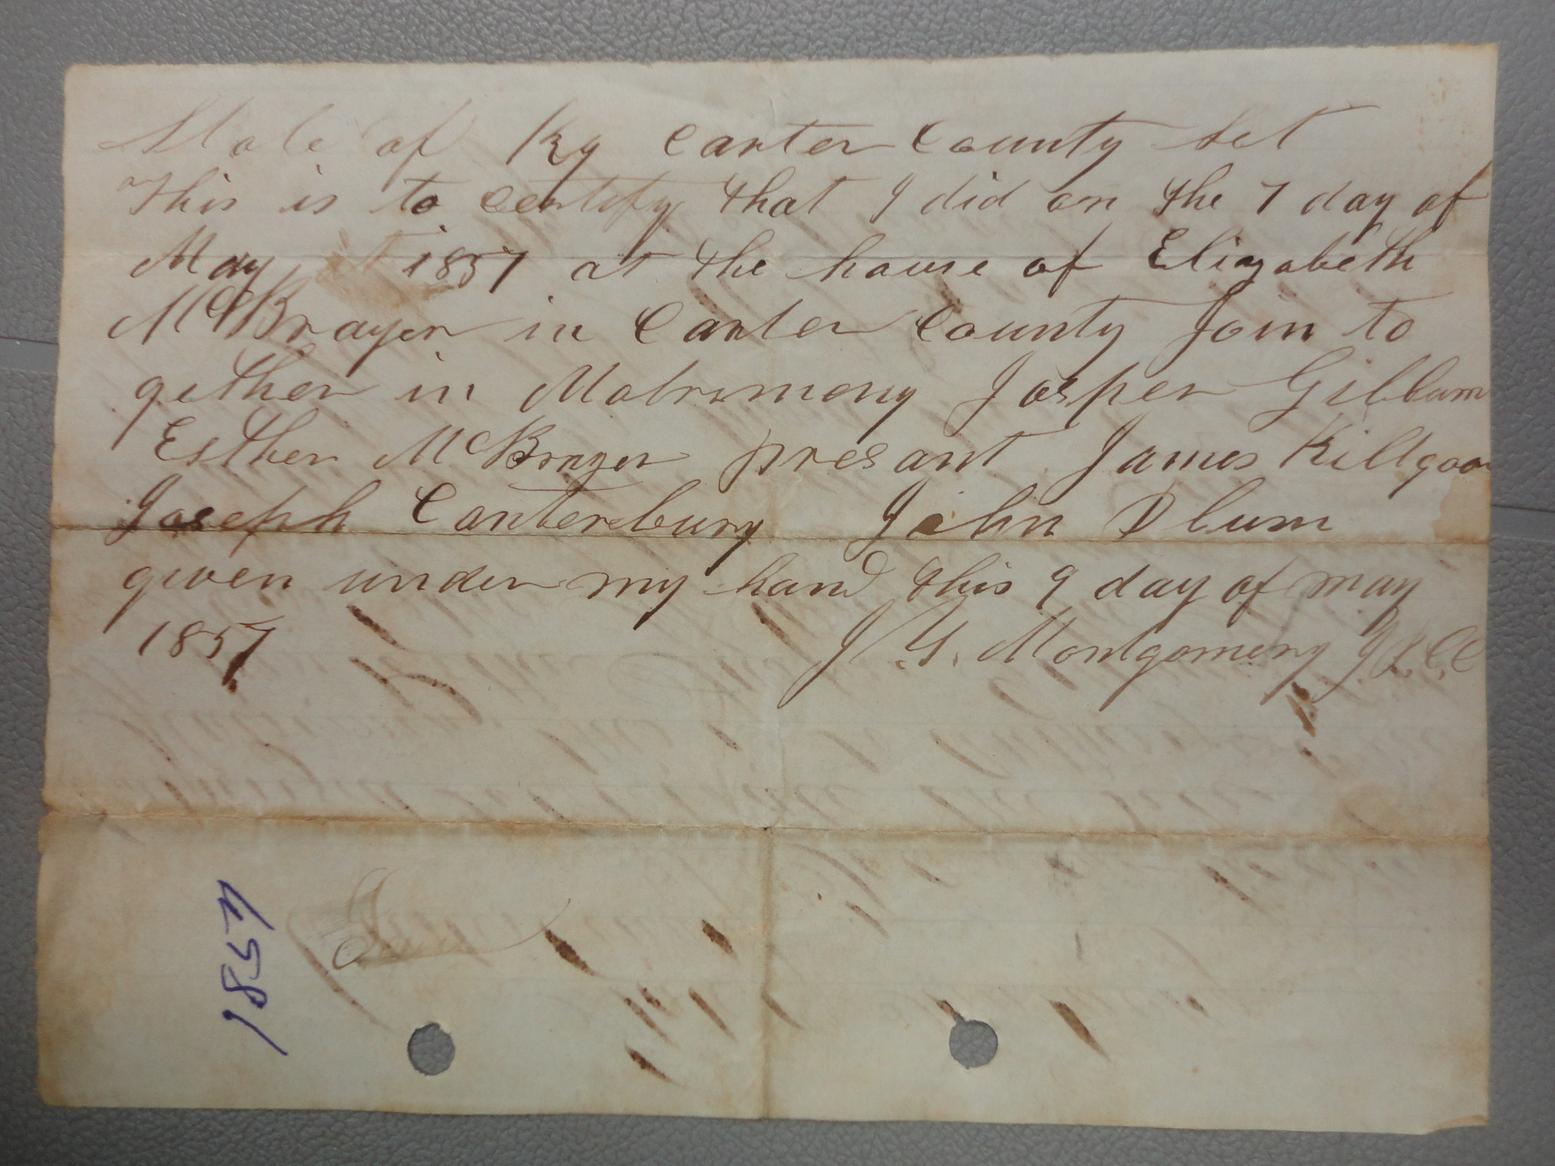 State of Ky Carter County Sct
This is to certify that I did on the 7 day of
May 1857 at the house of Elizabeth
McBrayer in Carter County Join to
gether in Matrimony Jasper Gilbum
Esther McBrayer presant James Killgoor
Joseph Canterbury John Plum
given under my hand this 9 day of may
1857 J G. Montgomery J P C C
1857